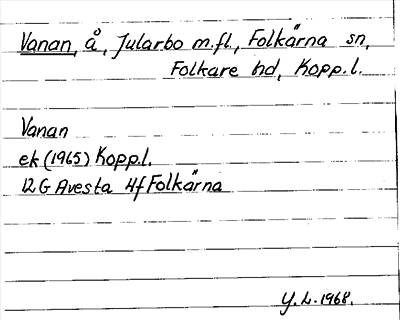 Vanan, å, Jularbo m.fl., Folkärna sn,
Folkare hd, Kopp.l.
Vanan
ek (1965) Kopp.l.
12G Avesta 4f Folkärna
Y.L. 1968.